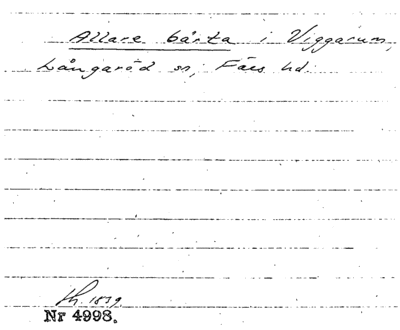 Allare bårta i Viggarum,
Långaröd sn, Färs hd.
th. 1879.
Nr 4998.